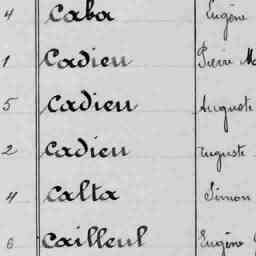 4 Caba Eugène
1 Cadieu Pierre
5 Cadieu Auguste
2 Cadieu Auguste
4 Calta Simon
6 Cailleul Eugène